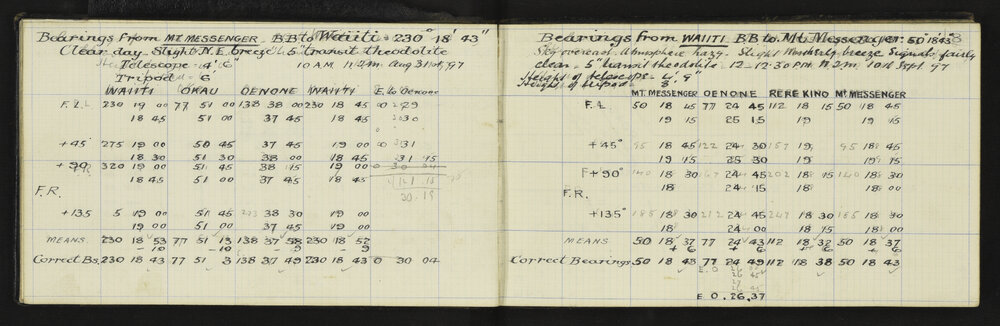 Bearings from MT. MESSENGER BB to Waiiti = 230° 18' 43"
Clear day Slight N.E. breeze 5" transit theodolite
Telescope = 4' 6" 10 A.M. Aug 31st, 97
Tripod = 6'
WAIITI OKAU OENONE WAIITI E. to Oenone
F.L. 230 19 00 77 51 00 138 38 00 230 18 45
18 45 51 00 37 45 18 45
+45 275 19 00 50 45 37 45 19 00
18 30 51 30 38 00 18 45
+90 320 19 00 51 45 38 15 19 00
18 45 51 00 37 45 18 45
30.19
F.R.
+135 5 19 00 51 45 38 30 19 00
19 00 51 00 37 45 19 00
MEANS. 230 18 53 77 51 13 138 37 58 230 18 52
-10 -10 9 9
Correct Bs. 230 18 43 77 51 3 138 37 49 230 18 43 0 30 04
Bearings from WAIITI BB to Mt. Messenger 50° 18' 43"
Sky overcast, atmosphere hazy. Slight Northerly breeze Signals fairly
clear = 5" transit theodolite = 12 - 12.30 p.m. 10th Sept. 97
Height of telescope = 4' 9"
Height of tripod = 8
MT. MESSENGER OENONE REREKINO MT. MESSENGER
F.L. 50 18 45 77 24 45 112 18 15 50 18 45
19 15 25 15 19 19 15
+45° 95 18 45 122 24 30 157 19 95 18 45
19 15 25 30 19 19 15
F+90° 140 18 30 167 24 45 202 18 15 140 18 30
18 24 15 18 18 00
F.R.
+135° 185 18 30 212 24 45 247 18 30 185 18 30
18 24 00 18 15 18 00
MEANS 50 18 37 77 24 43 112 18 32 50 18 37
+6 6 6 6
Correct Bearings. 50 18 43 77 24 49 112 18 38 50 18 43
E 0. 26. 37